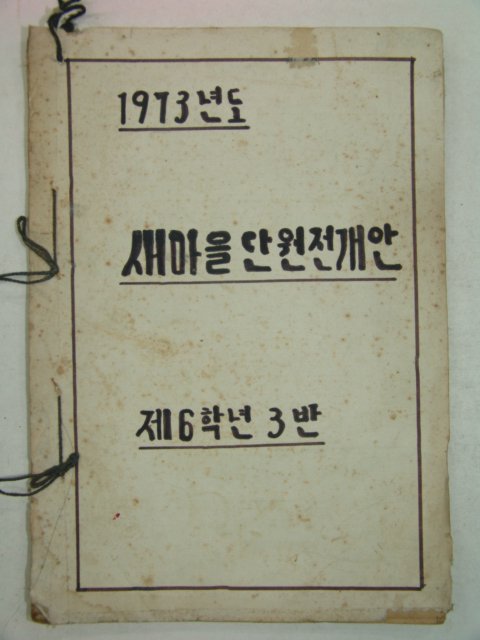 1973년도
새마을 단원전개안
제6학년 3반